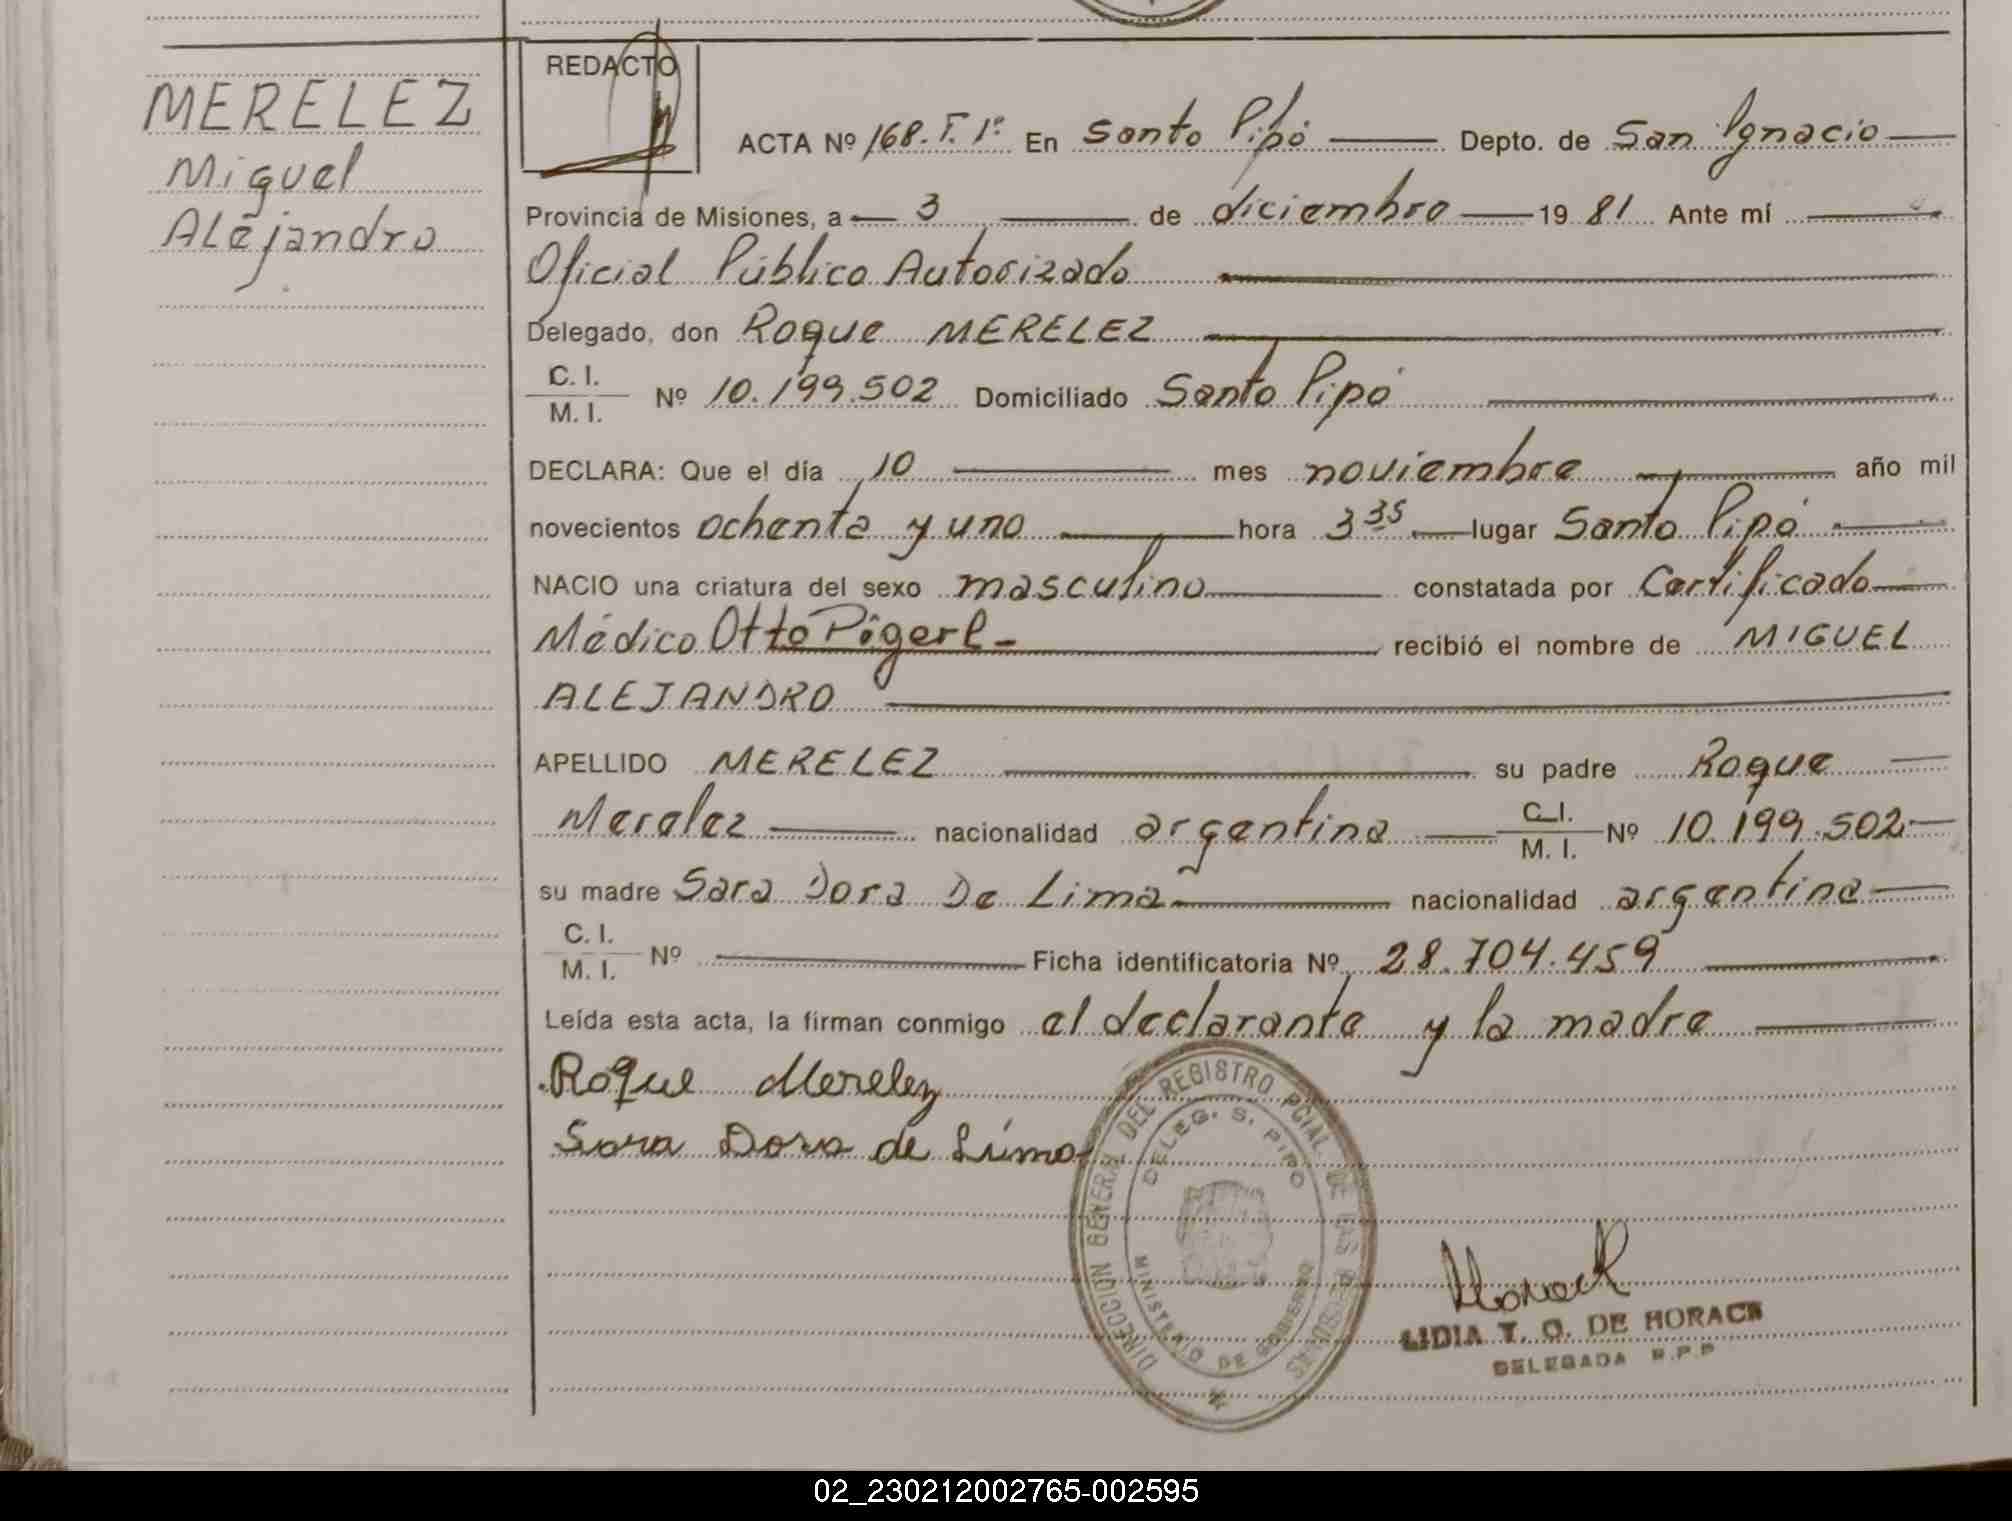 MERELEZ
Miguel
Alejandro
REDACTO
ACTA Nº 168. T. 1º. En Santo Pipó Depto. de San Ignacio
Provincia de Misiones, a 3 de diciembre 19 81 Ante mí
Oficial Público Autorizado
Delegado, don Roque MERELEZ
C. I.
M. I. Nº 10.199.502 Domiciliado Santo Pipó
DECLARA: Que el día 10 mes noviembre año mil
novecientos ochenta y uno hora 3 35 lugar Santo Pipó
NACIO una criatura del sexo masculino constatada por Certificado
Médico Otto Pögerl - recibió el nombre de MIGUEL
ALEJANDRO
APELLIDO MERELEZ su padre Roque
Merelez nacionalidad argentina C. I.
M. I. Nº 10.199.502
su madre Sara Dora De Lima nacionalidad argentina
C. I.
M. I. Nº Ficha identificatoria Nº 28.704.459
Leída esta acta, la firman conmigo el declarante y la madre
Roque Merelez
Sara Dora de Lima
DIRECCION GENERAL DEL REGISTRO PCIAL. DE LAS PERSONAS
DELEG. S. PIPO
MINISTERIO DE GOBIERNO
Horack
LIDIA T. O. DE HORACK
DELEGADA R.P.P
02_230212002765-002595